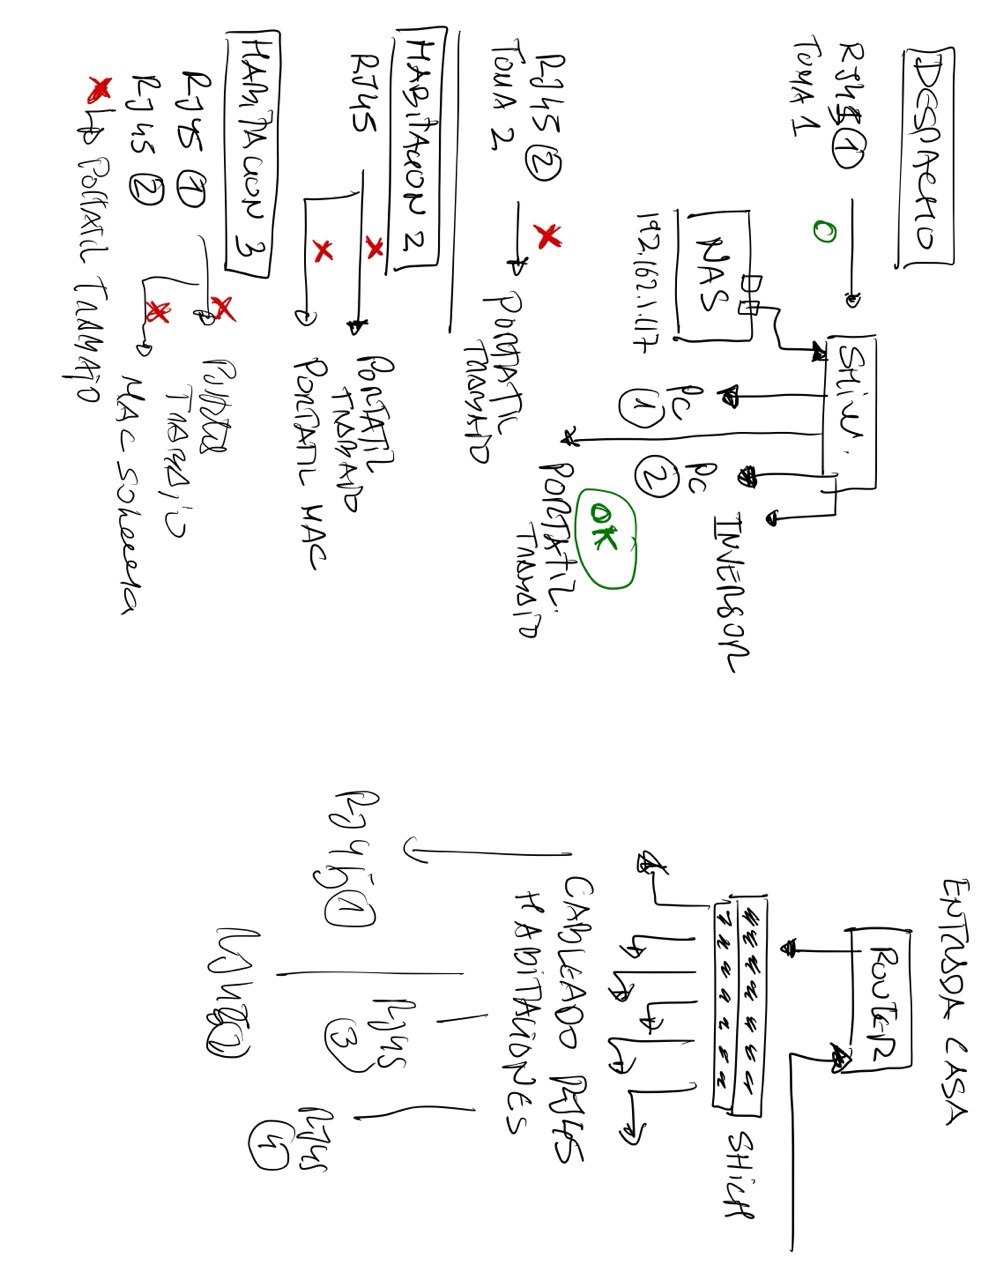 DESPACHO
RJ45 ①
TOMA 1
SHIW.
NAS
192.162.1.117
PC
①
PC
②
INVERSOR
OK
PORTATIL
TRABAJO
RJ45 ②
TOMA 2
PORTATIL
TRABAJO
HABITACION 2
RJ45
PORTATIL
TRABAJO
PORTATIL MAC
HABITACION 3
RJ45 ①
RJ45 ②
TRABAJO
MAC
PORTATIL TRABAJO
ENTRADA CASA
ROUTER
SHICH
CABLEADO RJ45
HABITACIONES
RJ45 ①
RJ45
③
RJ45
④